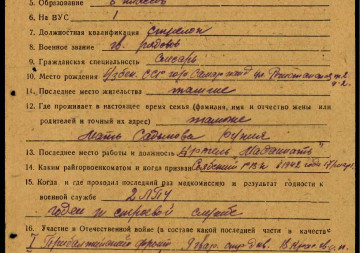 5. Образование 6 классов
6. На ВУС 1
7. Должностная квалификация стрелок
8. Военное звание гв. рядовой
9. Гражданская специальность слесарь
10. Место рождения Узбек. ССР гор. Самарканд ул.
11. Последнее место жительства
12. Где проживает в настоящее время семья (фамилия, имя и отчество жены или
родителей и точный их адрес)
Мать
13. Последнее место работы и должность Артель
14. Каким райгорвоенкоматом и когда призван РВК 1942 года
15. Когда и где проходил последний раз медкомиссию и результат годности к
военной службе
годен к строевой службе
16. Участие в Отечественной войне (в составе какой последней части в качестве
I Прибалтийский фронт